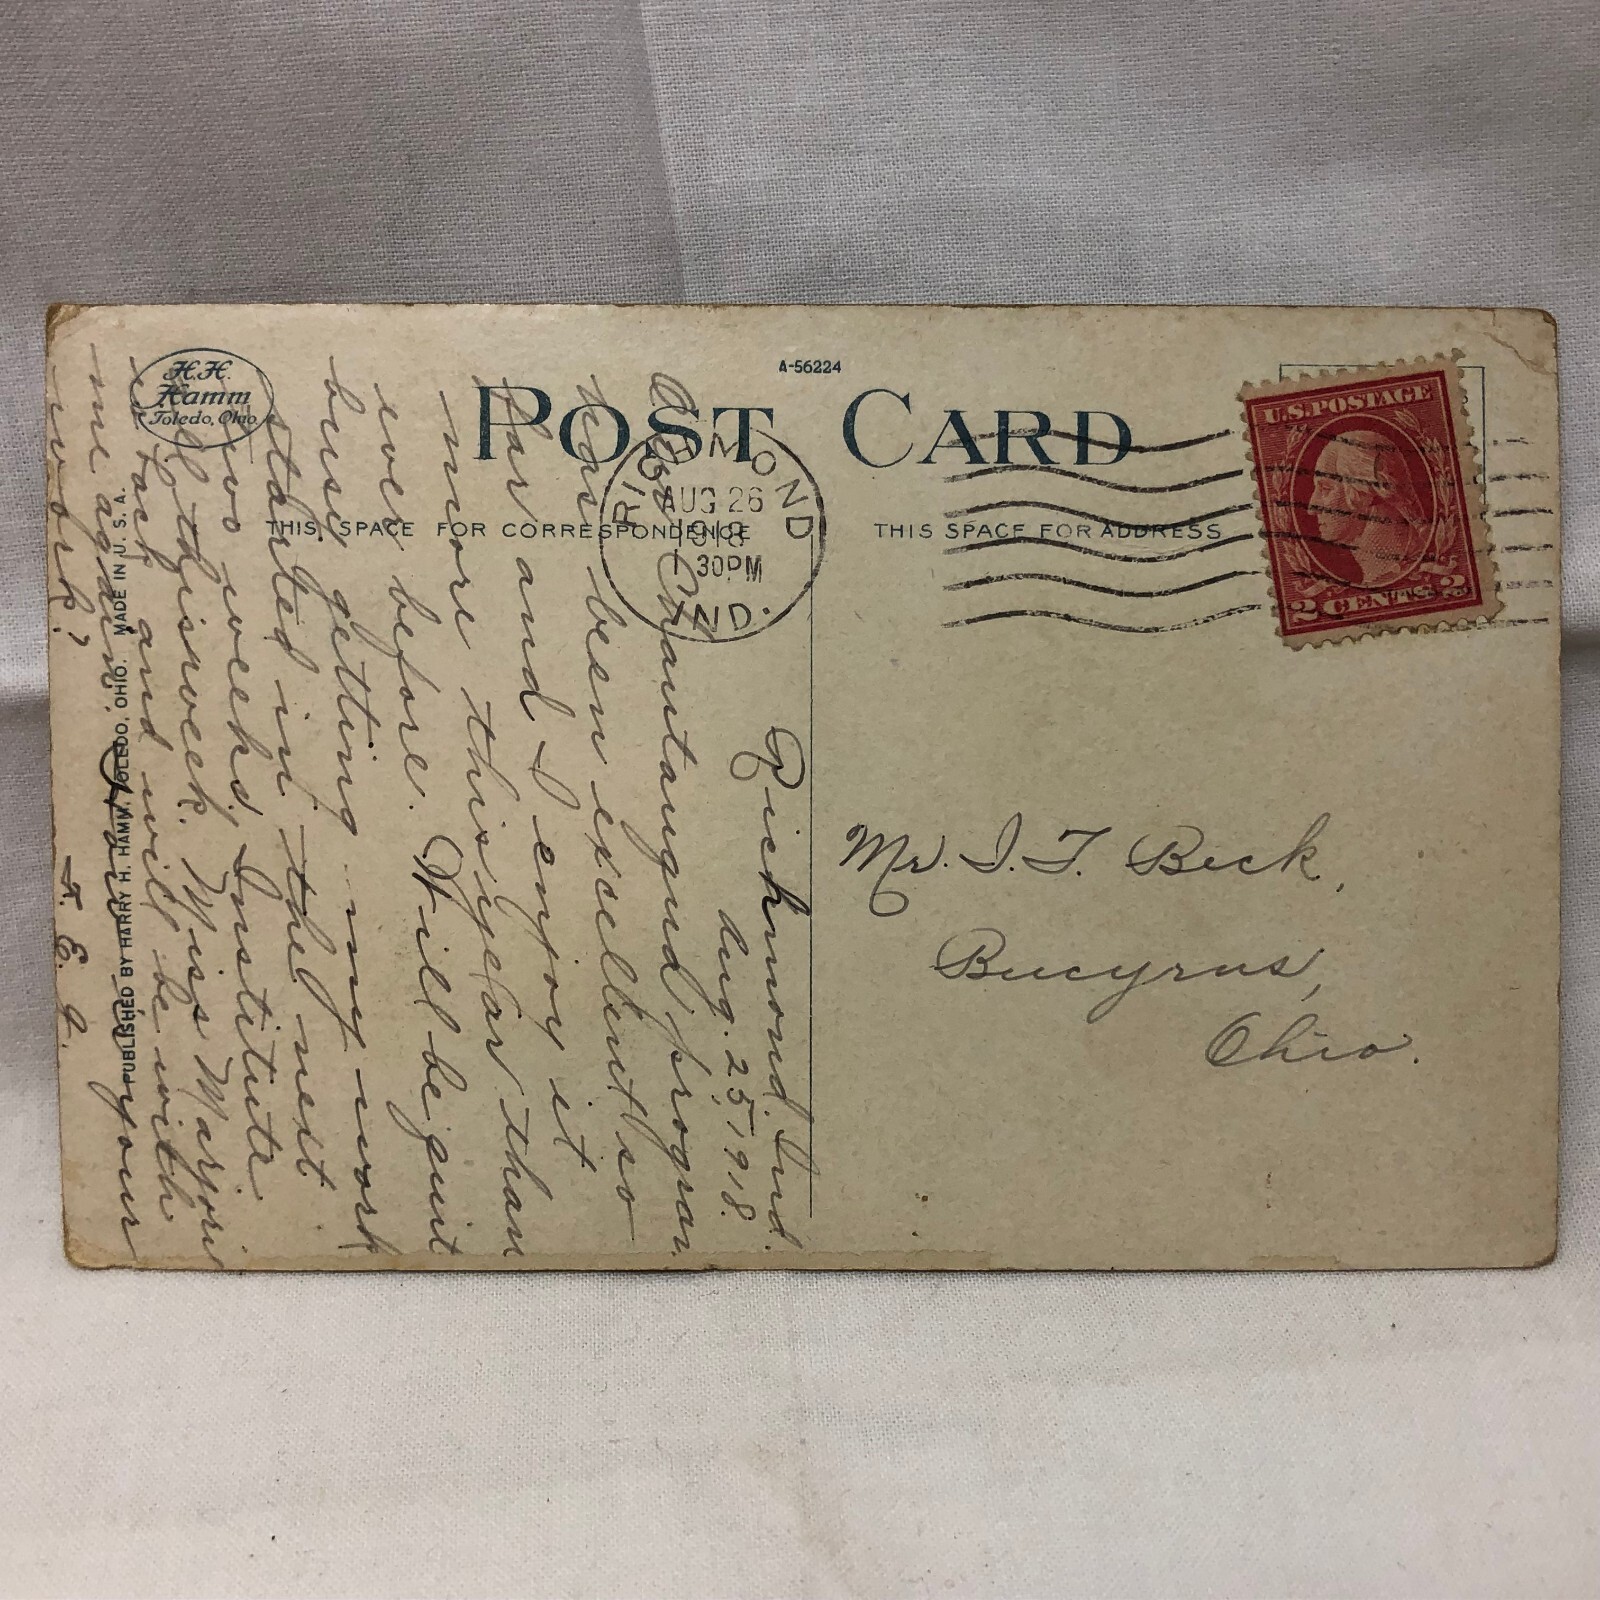 H.H.
Hamm
Toledo, Ohio
A-56224
POST CARD
THIS SPACE FOR CORRESPONDENCE
THIS SPACE FOR ADDRESS
RICHMOND
AUG 26
1918
30PM
IND.
U.S. POSTAGE
2 CENTS 2
Richmond, Ind.
Aug. 25, 1918.
Our Chautauqua program
has been excellent so
far and I enjoy it
more this year than
ever before. Will be quit
busy getting my work
started in the next
two weeks. Institute
all this week. Miss Marjorie
is back and will be with
me again. your
work?
F. E. J.
Mr. I. T. Beck,
Bucyrus,
Ohio.
PUBLISHED BY HARRY H. HAMM, TOLEDO, OHIO. MADE IN U. S. A.